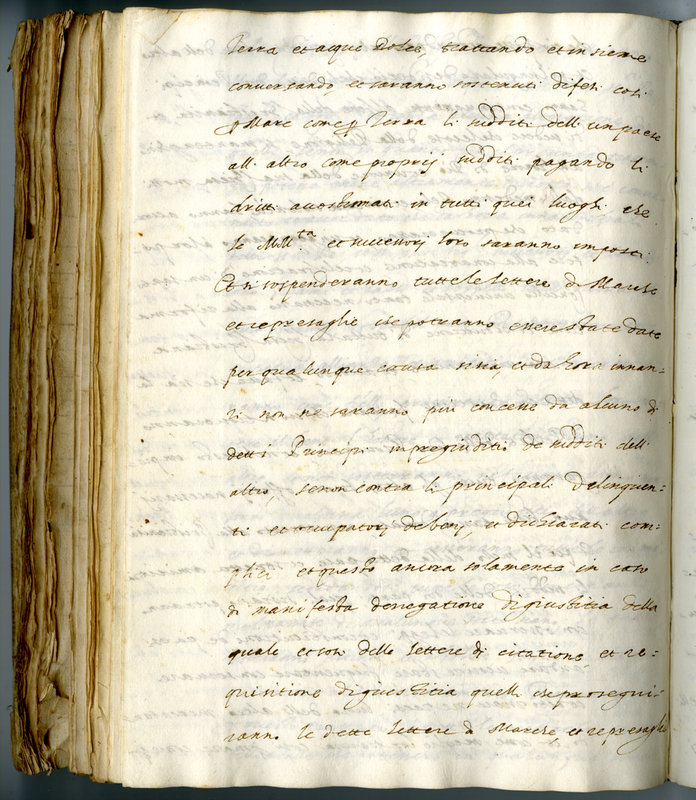 Terra et acque Dolci, trattando et insieme
conversando, et saranno sostenuti difesi così
p Mare come p Terra li sudditi dell'un paese
all'altro come proprij sudditi pagando li
dritti accostumati in tutti quei luoghi, che
le MM.tà et successori loro saranno imposti.
Et si sospenderanno tutte le lettere di Marche
et represaglie che potranno essere state date
per qualunque causa si sia, et da hora innan=
zi non ne saranno più concesse da alcuno di
detti Principi in pregiuditio de sudditi dell'
altro, se non contra li principali delinquen=
ti et occupatori de beni, et dichiarati com=
plici et questo ancora solamente in caso
di manifesta denegatione di giustitia della
quale et con delle lettere di citatione, et re=
quisitione di giustitia quelli che prosegui=
ranno le dette lettere di Marche, et represaglie